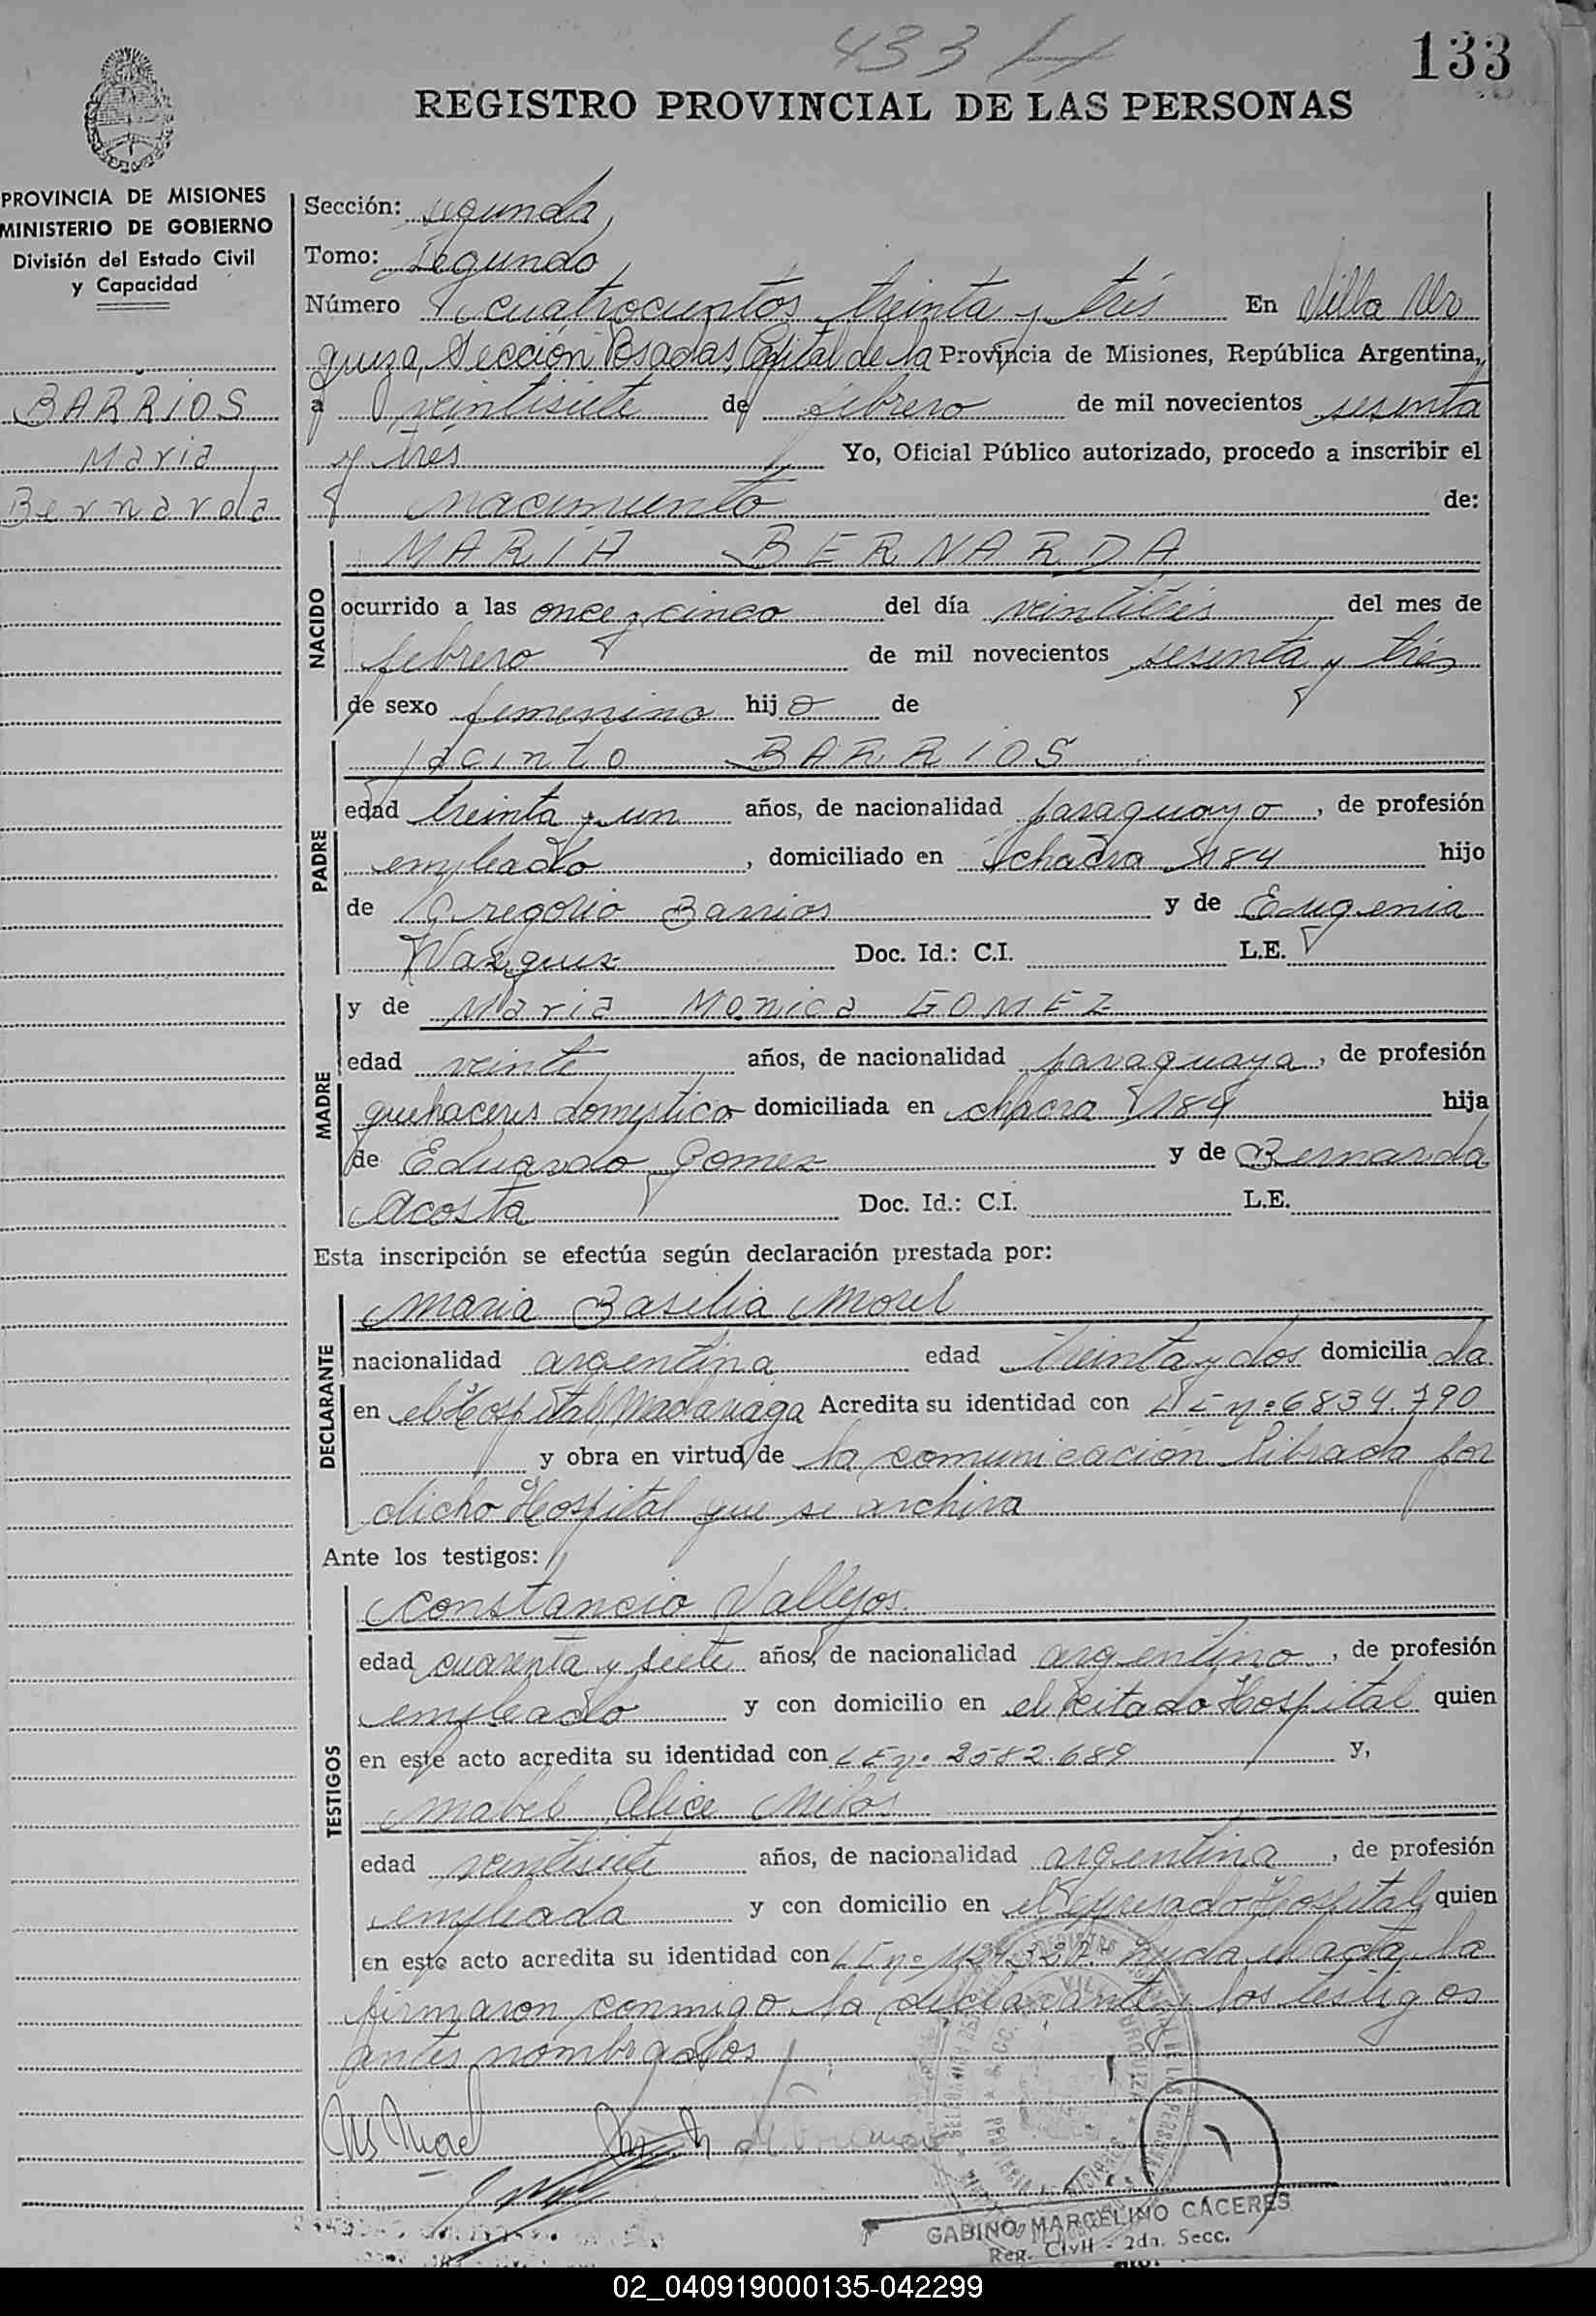 433
133
REGISTRO PROVINCIAL DE LAS PERSONAS
PROVINCIA DE MISIONES
MINISTERIO DE GOBIERNO
División del Estado Civil
y Capacidad
BARRIOS
Maria
Bernarda
Sección: segunda
Tomo: Segundo
Número cuatrocientos treinta y trés En Villa Ur
quiza, Sección Posadas, Capital de la Provincia de Misiones, República Argentina,
a veintisiete de febrero de mil novecientos sesenta
y tres Yo, Oficial Público autorizado, procedo a inscribir el
nacimiento de:
NACIDO
MARIA BERNARDA
ocurrido a las once y cinco del día veintitrés del mes de
febrero de mil novecientos sesenta y trés
de sexo femenino hij a de
PADRE
Jacinto BARRIOS
edad treinta y un años, de nacionalidad paraguayo, de profesión
empleado, domiciliado en chacra 184 hijo
de Gregorio Barrios y de Eugenia
Doc. Id.: C.I. L.E.
MADRE
y de Maria Monica GOMEZ
edad veinte años, de nacionalidad paraguaya, de profesión
quehaceres domestico domiciliada en chacra 184 hija
de Eduardo Gomez y de Bernarda
Acosta Doc. Id.: C.I. L.E.
Esta inscripción se efectúa según declaración prestada por:
DECLARANTE
Maria Basilia Morel
nacionalidad argentina edad treinta y dos domicilia da
en el Hospital Madariaga Acredita su identidad con nº 6834.790
y obra en virtud de la comunicación librada por
dicho Hospital que se archiva
Ante los testigos:
TESTIGOS
Constancio Vallejos
edad cuarenta y siete años, de nacionalidad argentino, de profesión
empleado y con domicilio en el citado Hospital quien
en este acto acredita su identidad con LE nº 2582.689 y,
Mabel Alice
edad veintisiete años, de nacionalidad argentina, de profesión
empleada y con domicilio en el expresado Hospital quien
en este acto acredita su identidad con nº leida el acta la
firmaron conmigo la declarante y los testigos
antes nombrados
GABINO MARCELINO CACERES
Reg. Civil - 2da. Secc.
02_040919000135-042299